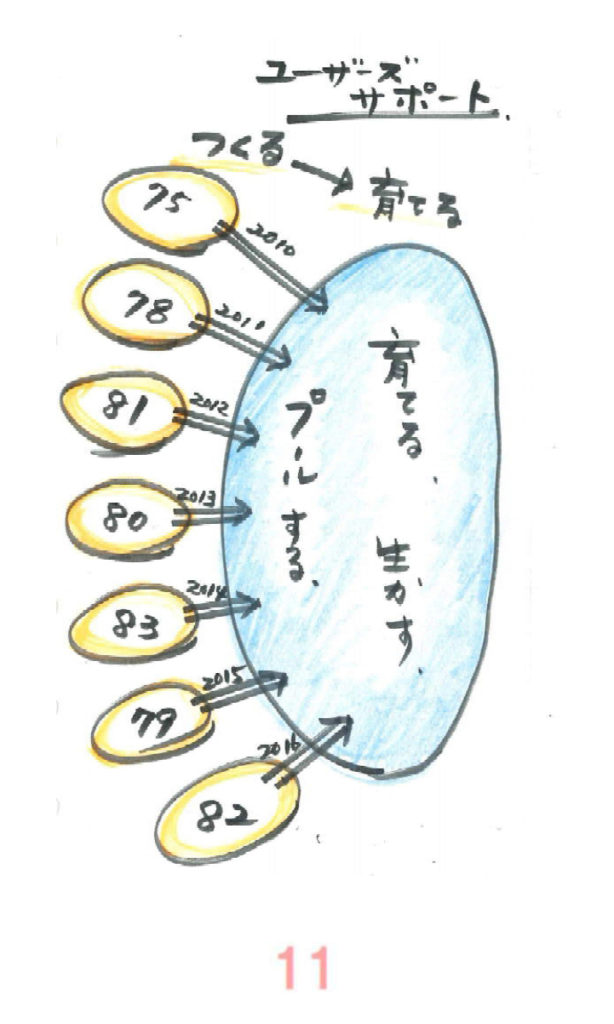 ユーザーズ
サポート.
つくる
育てる
75
2010
78
2011
81
2012
80
2013
83
2014
79
2015
82
2016
育てる、生かす、
プールする、
11